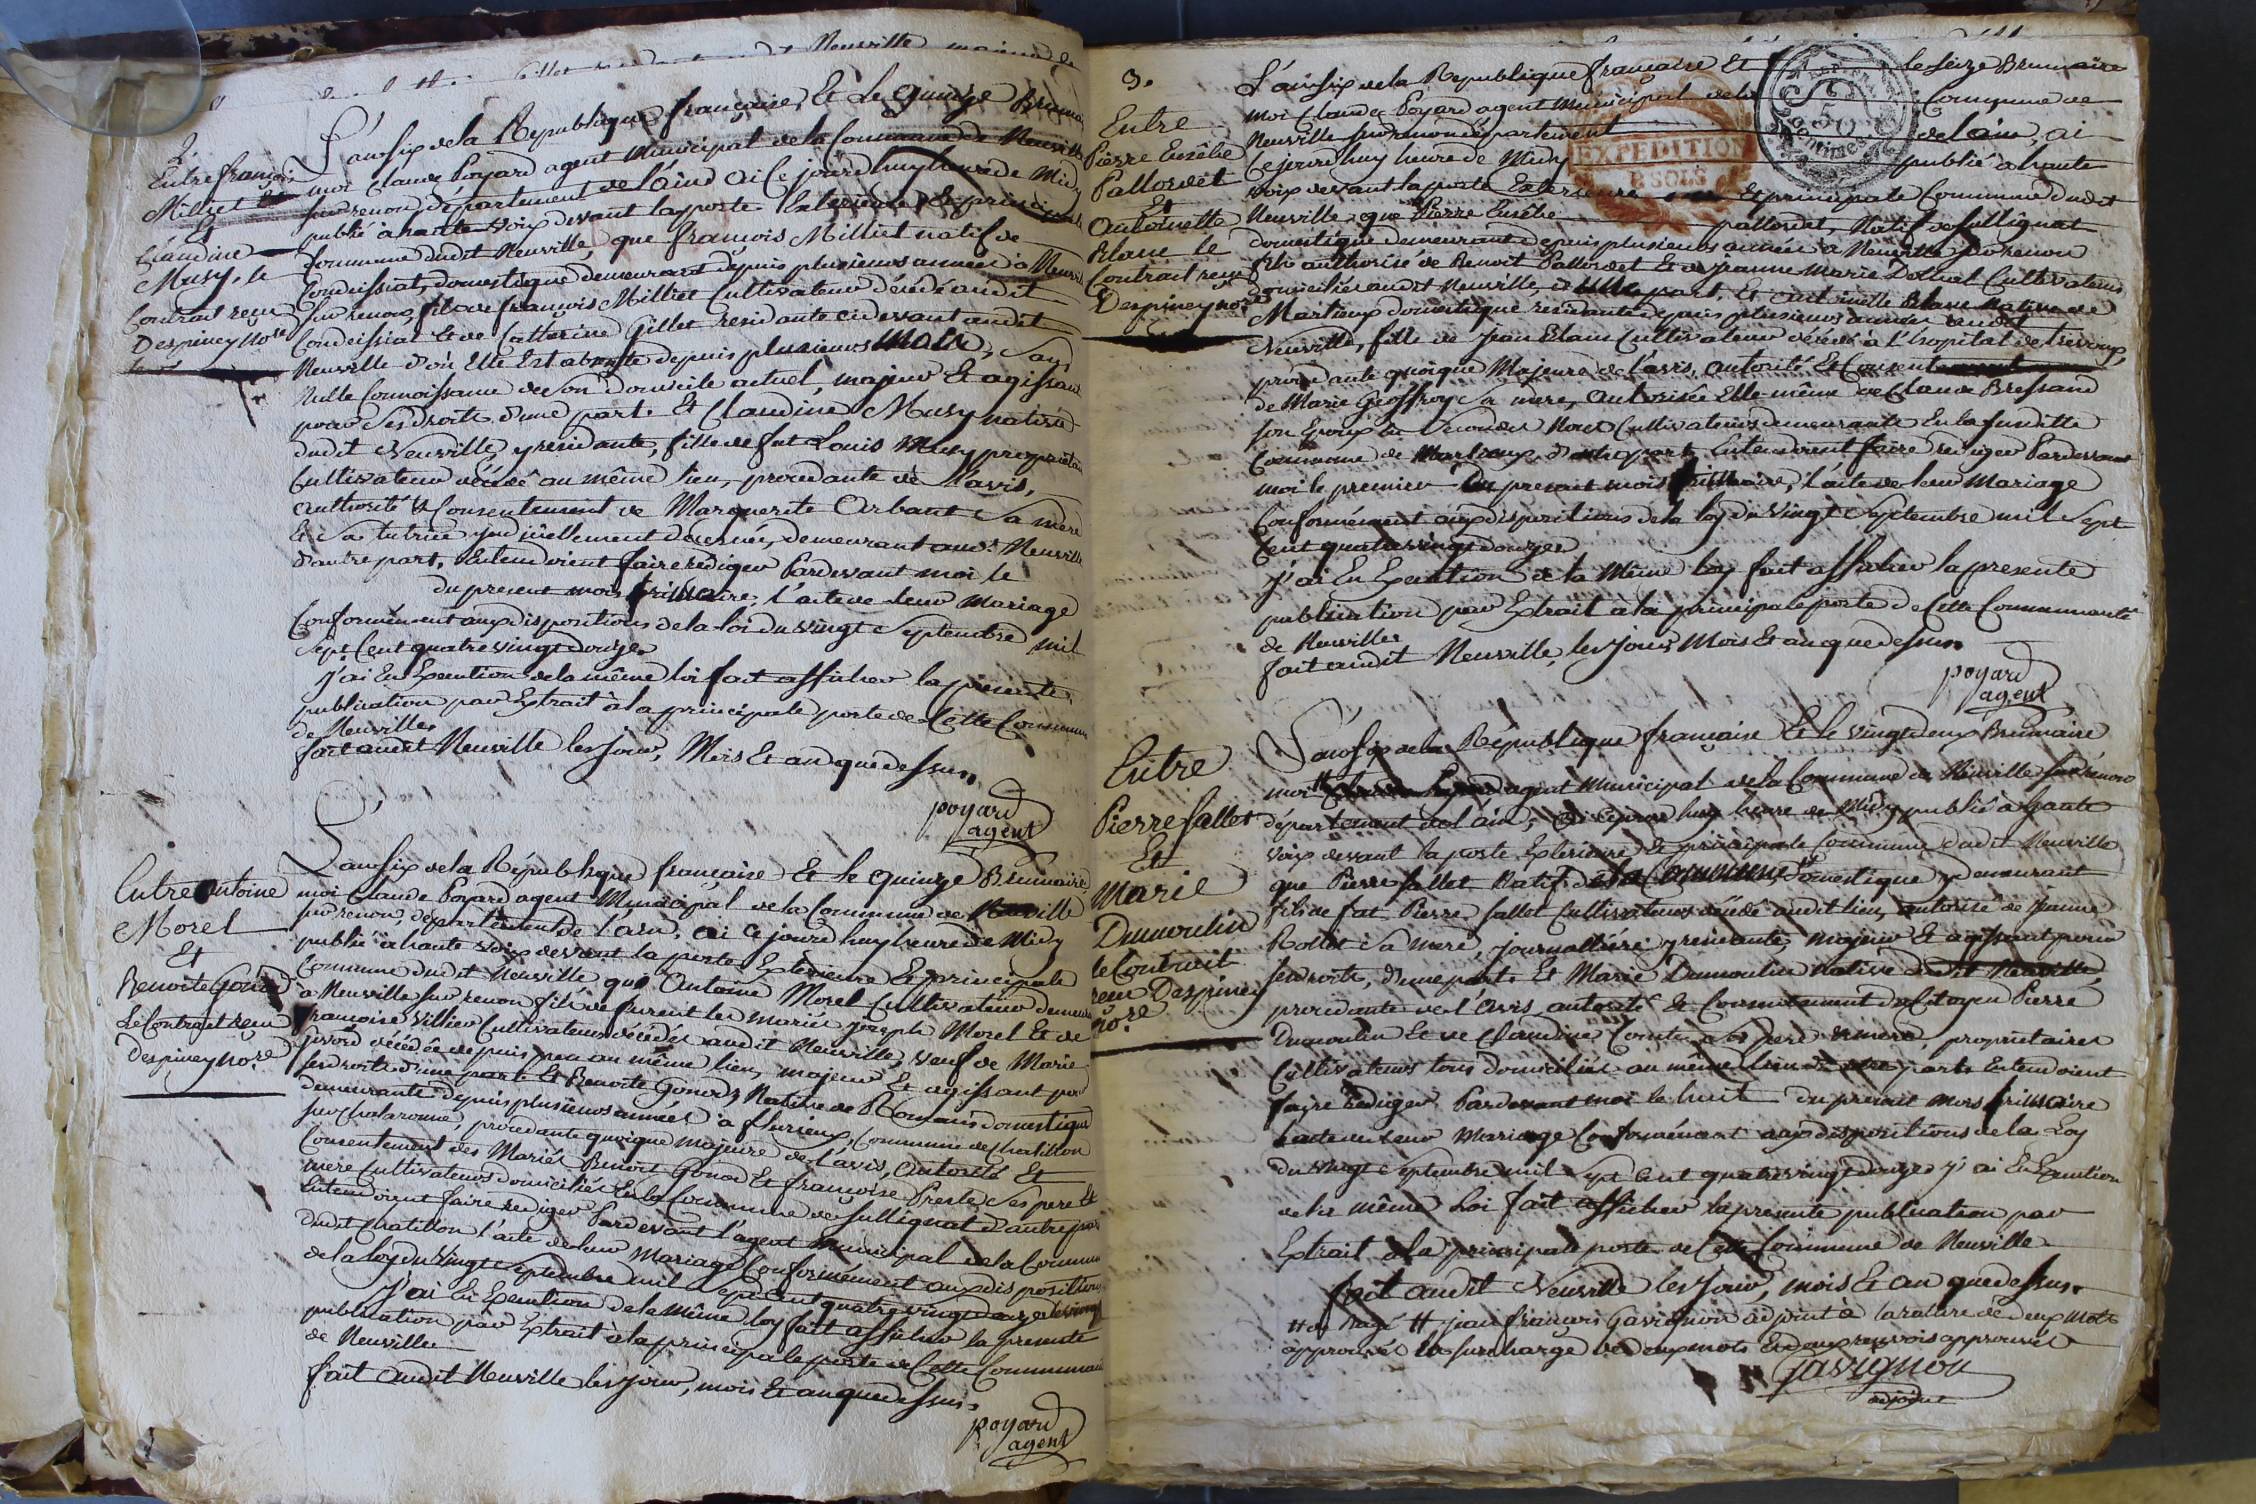 2
Entre françois
Milliet
Et
Claudine
Musy, le
Contrat reçu
Despiney no.re
L'an six de la République française, Et Le quinze Brumaire
moi Claude Poyard agent Municipal de la Commune de Neuville
sur renon, département de l'ain, ai Ce jourd'huy heure de Midy
publié à haute voix devant la porte Exterieure Et principale
Commune dudit Neuville, que françois Milliet natif de
Condeissiat, domestique demeurant depuis plusieurs années à Neuville
sur renon, fils de françois Milliet Cultivateur décédé audit
Condeissiat Et de Catherine Gillet residante cidevant audit
Neuville d'où Elle Est absente depuis plusieurs mois, sans
Nulle Connoissance de son domicile actuel, majeur Et agissant
pour ses droits d'une part. Et Claudine Musy native
dudit Neuville, y residante, fille de fut Louis Musy proprietaire
Cultivateur décédé au même lieu, procedante de l'avis,
authorité & Consentement de Marguerite Arbant sa mère
Et sa tutrice judiciellement décernée, demeurant audt. Neuville
d'autre part, Entendoient faire rédiger Pardevant moi le
du present mois frimaire, l'acte de leur Mariage
Conformément aux dispositions de la loi du vingt Septembre mil
Sept Cent quatre vingt douze.
J'ai En Execution de la même loi fait afficher la presente
publication par Extrait à la principale porte de Cette Commune
de Neuville.
fait audit Neuville les Jour, Mois Et an que dessus.
poyard
agent
Entre antoine
Morel
Et
Benoite Gonod
Le Contrat reçu
Despiney no.re
L'an six de la République française Et Le quinze Brumaire
moi Claude Poyard agent Municipal de la Commune de Neuville
sur renon, département de l'ain, ai Ce jourd'huy heure de Midy
publié à haute voix devant la porte Exterieure Et principale
Commune dudit Neuville que Antoine Morel Cultivateur demeurant
à Neuville sur renon fils de furent les mariés joseph Morel Et de
françoise Villier Cultivateurs décédés audit Neuville, veuf de Marie
décédée depuis peu au même lieu, majeur Et agissant pour
ses droits d'une part. Et Benoite Gonod, Native de Romans domestique
demeurante depuis plusieurs années à flurieux, Commune de Chatillon
sur chalaronne, procedante quoique majeure de l'avis, autorité Et
Consentement des Mariés Benoit Gonod Et françoise Preste ses pere Et
mere Cultivateurs domiciliés En la Commune de Sullignat d'autre part
Entendoient faire rediger Pardevant l'agent municipal de la Commune
dudit Chatillon l'acte de leur Mariage Conformément aux dispositions
de la loy du vingt Septembre mil Sept Cent quatre vingt douze
J'ai En Execution de la même loy fait afficher la presente
publication par Extrait à la principale porte de Cette Commune
de Neuville
fait audit Neuville les Jour, mois Et an que dessus.
poyard
agent
3.
Entre
Pierre Eusêbe
Pallordet
Et
Antoinette
Blanc le
Contrait reçu
Despiney no.re
EXPEDITION
8 SOLS
50
centimes
L'an six de la Republique française Et le seize Brumaire
moi Claude Poyard agent Municipal de la Commune de
Neuville sur renon département de l'ain, ai
Ce jourd'huy heure de Midy publié à haute
voix devant la porte Exterieure Et principale Commune dudit
Neuville, que Pierre Eusêbe pallordet, Natif de Sullignat
domestique demeurant depuis plusieurs années à Neuville sur renon
fils authorisé de Benoit Pallordet Et de jeanne marie Cultivateurs
domiciliés audit Neuville, d'une part, Et antoinette Blanc native de
Marlieux domestique residante depuis plusieurs années audit
Neuville, fille de Jean Blanc Cultivateur décédé à L'hopital de Trevoux,
procedante quoique Majeure de l'avis, autorité Et Consentement
de Marie Geoffroy sa mere, autorisée Elle même de Claude Bressand
son Epoux En secondes Noces Cultivateurs demeurants En la susditte
Commune de Marlieux d'autre part, Entendoient faire rediger Pardevant
moi le premier du present mois frimaire, l'acte de leur Mariage
Conformément aux dispositions de la loy du vingt Septembre mil Sept
Cent quatre vingt douze.
J'ai En Execution de la Même loy fait afficher la presente
publication par Extrait à la principale porte de Cette Communauté
de Neuville.
fait audit Neuville, les Jour, Mois Et an que dessus.
poyard
agent
Entre
Pierre fallet
Et
Marie
Dumoulin
le Contrait
reçu Despiney
no.re
L'an six de la République française Et le vingt deux Brumaire
moi # agent Municipal de la Commune de Neuville sur renon
département de l'ain, ai Ce jourd'huy heure de Midy publié à haute
voix devant la porte Exterieure Et principale Commune dudit Neuville
que Pierre fallet Natif de la Commune # domestique y demeurant
fils de fut Pierre fallet Cultivateur décédé audit lieu, autorisé de jeanne
Rollet sa mere, journalliere y residante, majeur Et agissant pour
ses droits, d'une part. Et Marie Dumoulin native dudit Neuville,
procedante de l'avis autorité & Consentement du Citoyen Pierre
Dumoulin Et de Claudine Comte ses pere & mere, proprietaires
Cultivateurs tous domiciliés au même lieu d'autre part, Entendoient
faire rediger Pardevant moi le huit du present mois frimaire
l'acte de leur Mariage Conformément aux dispositions de la Loy
du vingt Septembre mil Sept Cent quatre vingt douze. j'ai En Execution
de la même Loi fait afficher la presente publication par
Extrait à la principale porte de Cette Commune de Neuville
fait audit Neuville les Jour, mois Et an que dessus.
# jean françois Gavignon adjoint & la rature de deux mots
approuvée la surcharge de deux mots Et deux renvois approuvés
Gavignon
adjoint